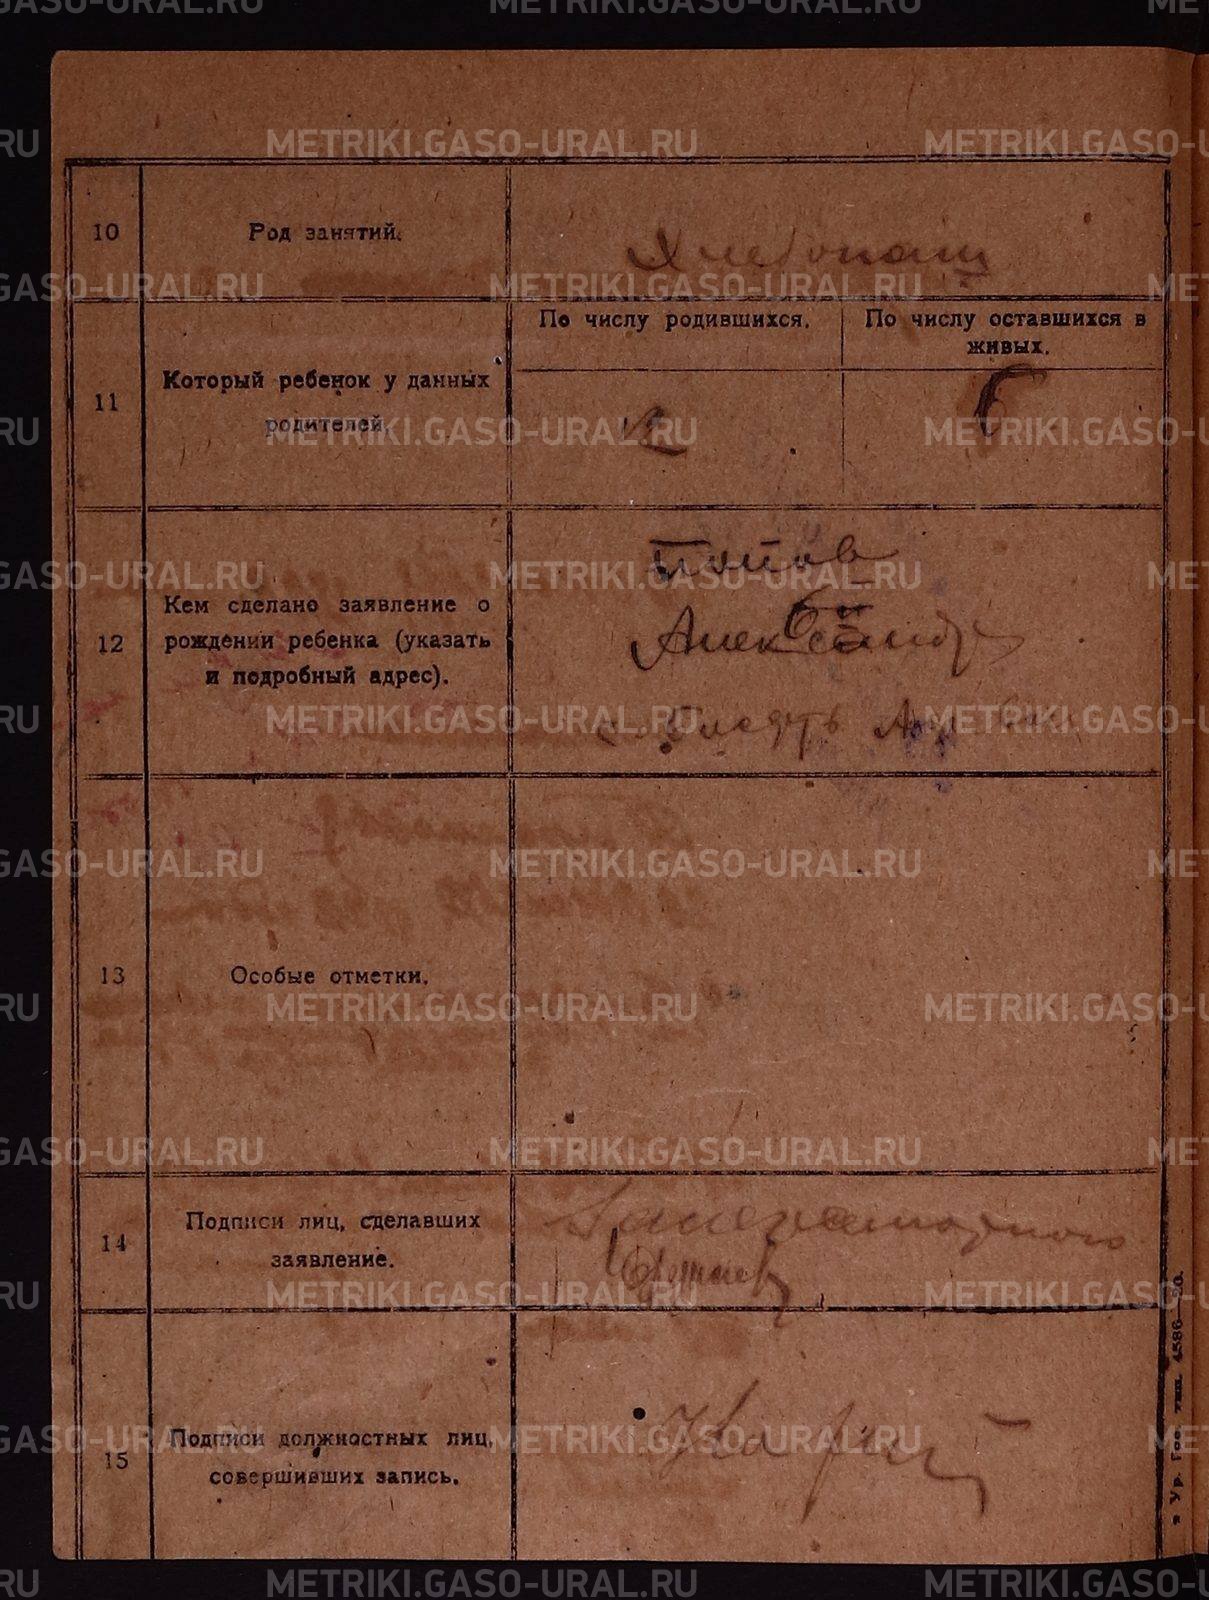 METRIKI.GASO-URAL.RU
10
Род занятий.
Хлебопаш
11
Который ребенок у данных
родителей.
По числу родившихся.
По числу оставшихся в
живых.
12
6
12
Кем сделано заявление о
рождении ребенка (указать
и подробный адрес).
Попов
Александр
13
Особые отметки.
14
Подписи лиц, сделавших
заявление.
За неграмотного
15
Подписи должностных лиц,
совершивших запись.
Ур. Гос. тип. 4586